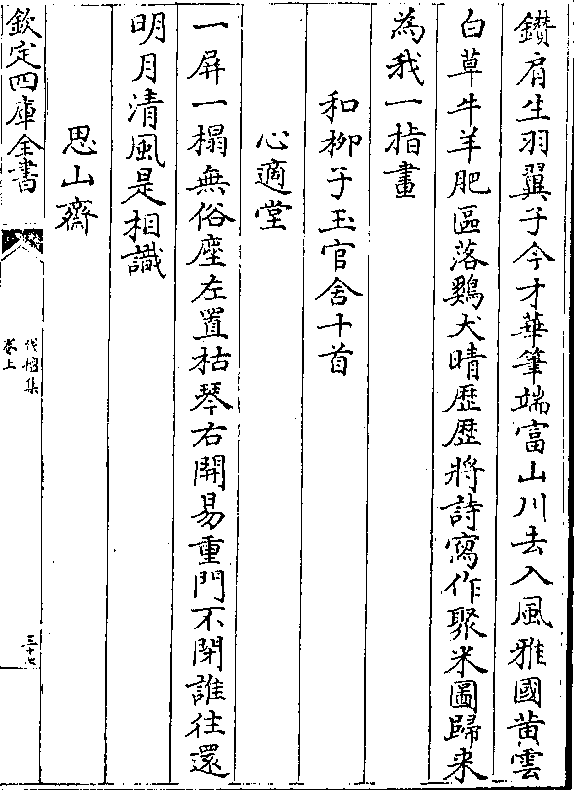 鑚肩生羽翼子今才華筆端富山川去入風雅國黄雲
白草牛羊肥區落鷄犬晴歷歷將詩寫作聚米圖歸来
為我一指畫
和柳子玉官舍十首
心適堂
一屏一榻無俗座左置枯琴右開易重門不閉誰往還
明月清風是相識
思山齋
欽定四庫全書
伐檀集
卷上
三十七